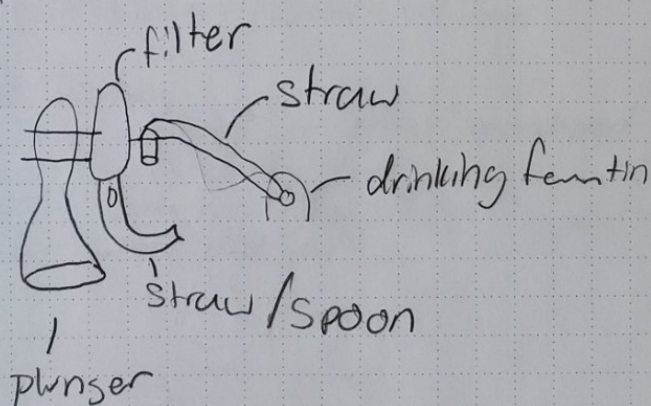 filter
straw
drinking femtin
straw/spoon
plunser